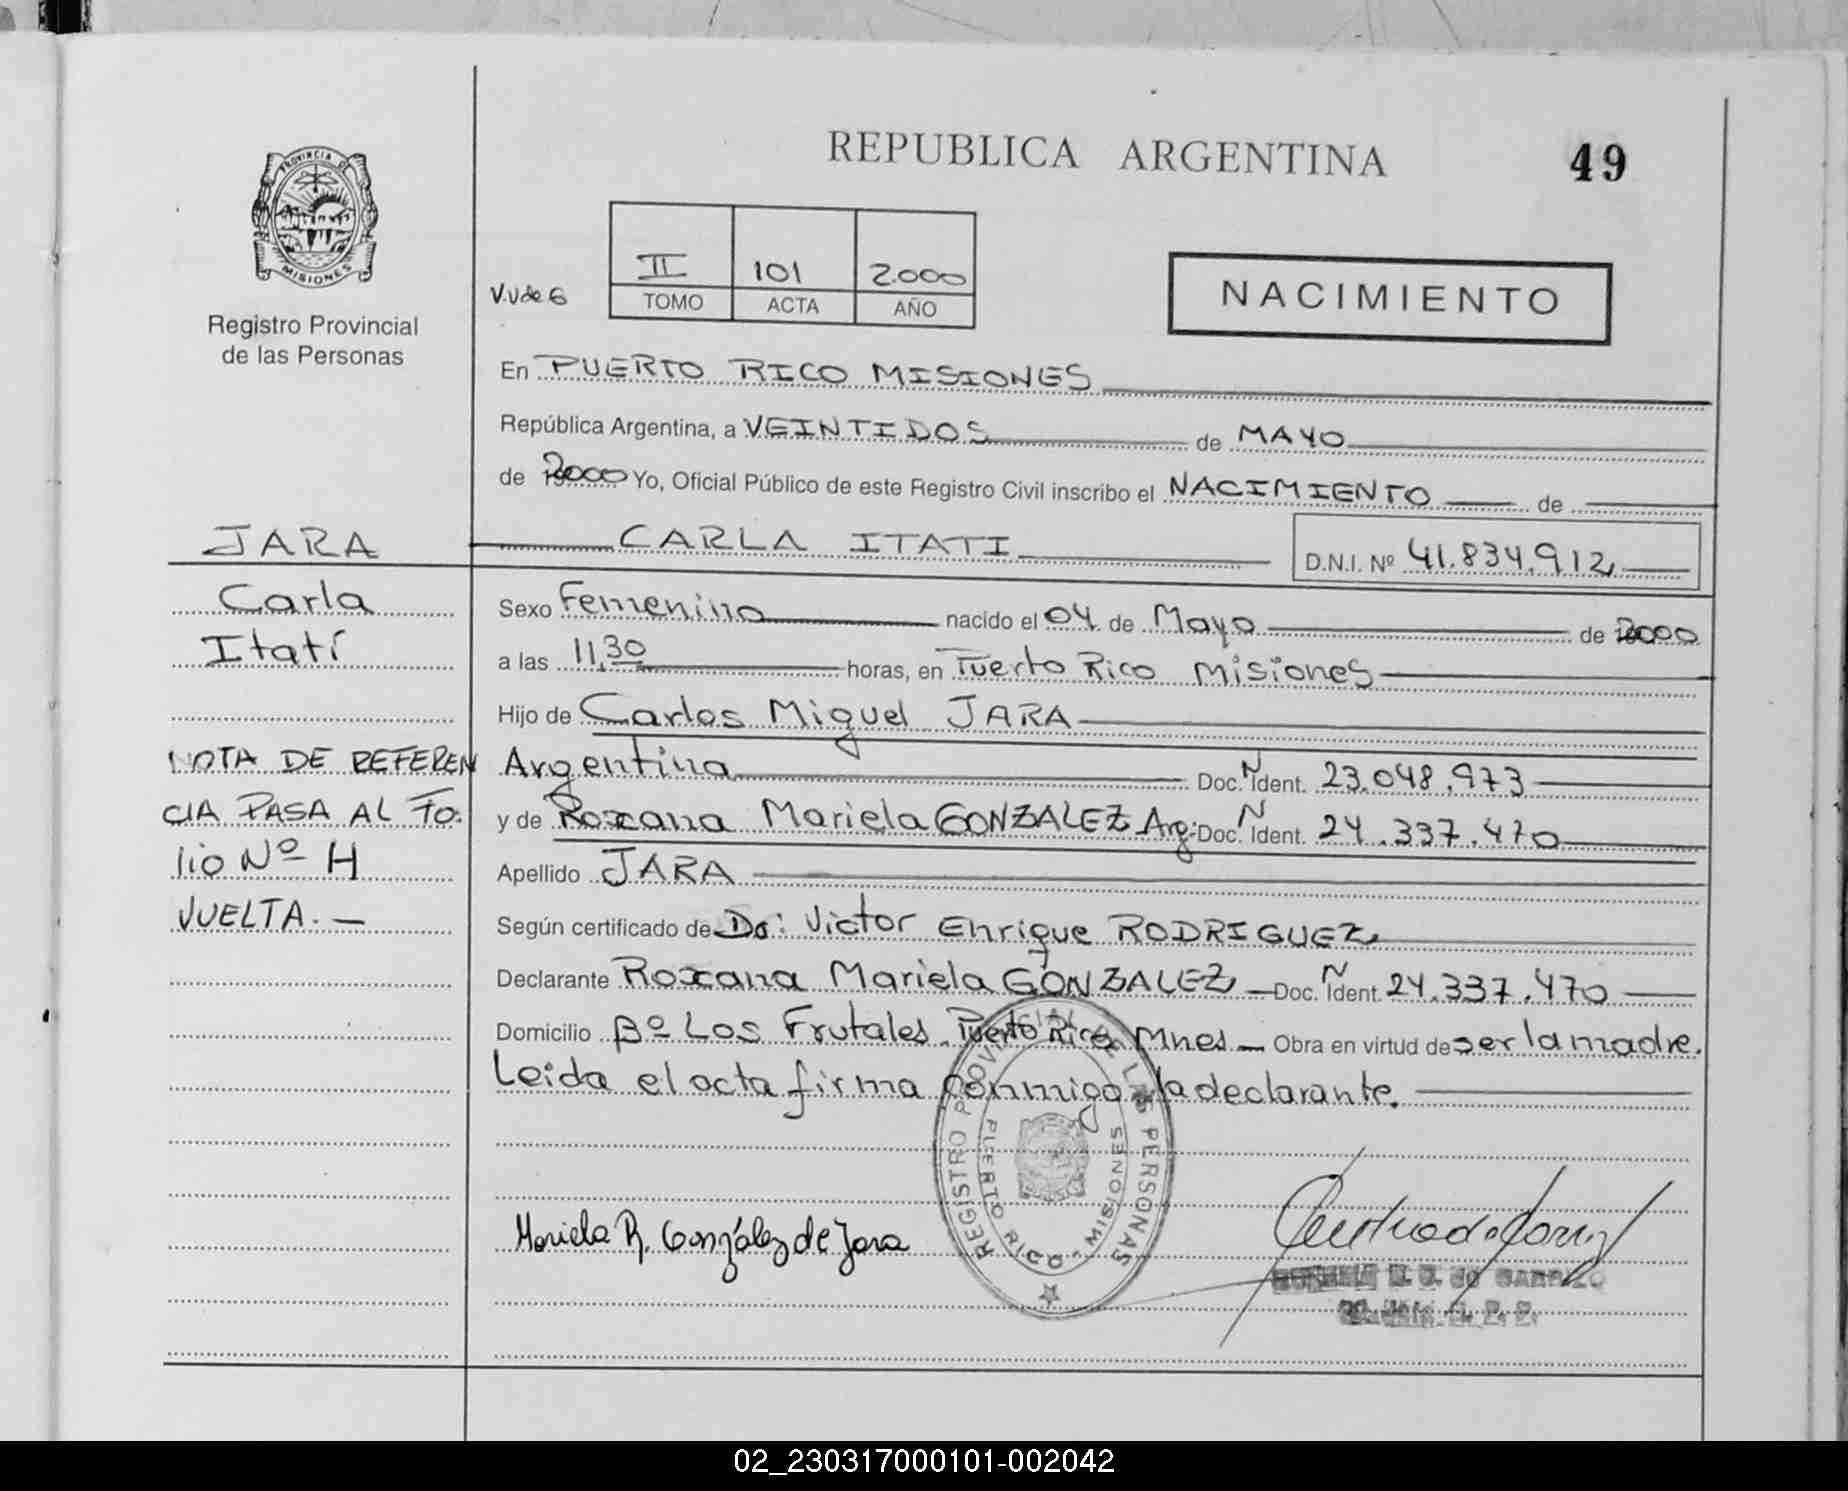 REPUBLICA ARGENTINA
49
PROVINCIA DE
MISIONES
Registro Provincial
de las Personas
V.V de G
II 101 2.000
TOMO ACTA AÑO
NACIMIENTO
En PUERTO RICO MISIONES
República Argentina, a VEINTIDOS de MAYO
de 2000 Yo, Oficial Público de este Registro Civil inscribo el NACIMIENTO de
JARA
CARLA ITATI
D.N.I. Nº 41.834.912
Carla
Itatí
Sexo Femenino nacido el 04 de Mayo de 2000
a las 11,30 horas, en Puerto Rico Misiones
Hijo de Carlos Miguel JARA
NOTA DE REFEREN
CIA PASA AL FO.
lio Nº H
VUELTA.
Argentina Doc. N Ident. 23.048.973
y de Roxana Mariela GONZALEZ Arg. Doc. N Ident. 24.337.470
Apellido JARA
Según certificado de Dr: Victor Enrique RODRIGUEZ
Declarante Roxana Mariela GONZALEZ Doc. N Ident. 24.337.470
Domicilio Bº Los Frutales. Puerto Rico Mnes Obra en virtud de ser la madre.
Leida el acta firma conmigo la declarante.
REGISTRO PROVINCIAL DE LAS PERSONAS
PUERTO RICO - MISIONES
Mariela R. González de Jara
02_230317000101-002042